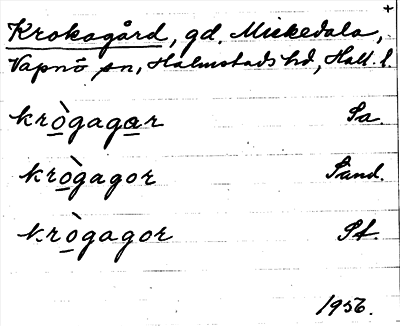 +
Krokagård, gd. Mickedala,
Vapnö sn, Halmstads hd, Hall. l.
krògagar Sa.
krògagor Sand.
krògagor St.
1956.